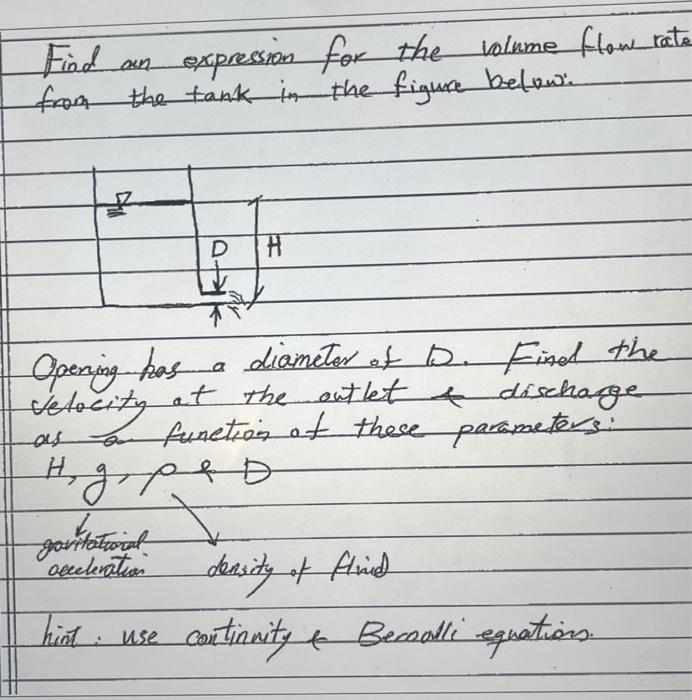 Find an expression for the volume flow rate
from the tank in the figure below:
D
H
Opening has a diameter of D. Find the
velocity at the outlet & discharge
as a function of these parameters:
H, g, ρ & D
gavitational
acceleration
density of fluid
hint: use continuity & Bernoulli equations.